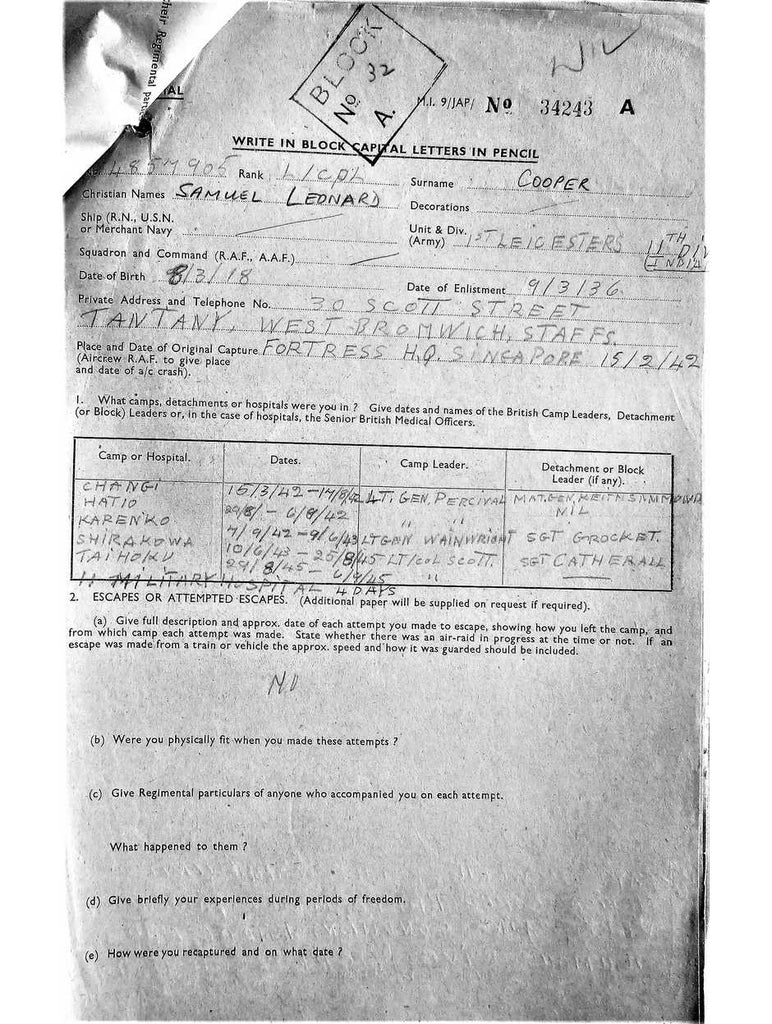 their Regimental part
IAL
BLOCK
No. 32
A.
M.I. 9/JAP/ No 34243 A
WRITE IN BLOCK CAPITAL LETTERS IN PENCIL
4857905 Rank L/CPL Surname COOPER
Christian Names SAMUEL LEONARD Decorations
Ship (R.N., U.S.N.
or Merchant Navy
Unit & Div.
(Army) 1ST LEICESTERS 11TH DIV
INDIA
Squadron and Command (R.A.F., A.A.F.)
Date of Birth 8/3/18 Date of Enlistment 9/3/36
Private Address and Telephone No. 30 SCOTT STREET
TANTANY, WEST BROMWICH, STAFFS.
Place and Date of Original Capture FORTRESS H.Q. SINGAPORE 15/2/42
(Aircrew R.A.F. to give place
and date of a/c crash).
1. What camps, detachments or hospitals were you in ? Give dates and names of the British Camp Leaders, Detachment
(or Block) Leaders or, in the case of hospitals, the Senior British Medical Officers.
Camp or Hospital. Dates. Camp Leader. Detachment or Block
Leader (if any).
CHANGI 15/3/42 – 14/8/42 LT. GEN. PERCIVAL
HATIO 29/8/ – 6/9/42 " " MIL
KARENKO 7/9/42 – 9/6/43 LT GEN WAINWRIGHT SGT CROCKET.
SHIRAKAWA 10/6/43 – 25/8/45 LT/COL SCOTT. SGT CATHERALL
TAIHOKU 29/8/45 – 6/9/45 "
11 MILITARY HOSPITAL 4 DAYS
2. ESCAPES OR ATTEMPTED ESCAPES. (Additional paper will be supplied on request if required).
(a) Give full description and approx. date of each attempt you made to escape, showing how you left the camp, and
from which camp each attempt was made. State whether there was an air-raid in progress at the time or not. If an
escape was made from a train or vehicle the approx. speed and how it was guarded should be included.
NO
(b) Were you physically fit when you made these attempts ?
(c) Give Regimental particulars of anyone who accompanied you on each attempt.
What happened to them ?
(d) Give briefly your experiences during periods of freedom.
(e) How were you recaptured and on what date ?